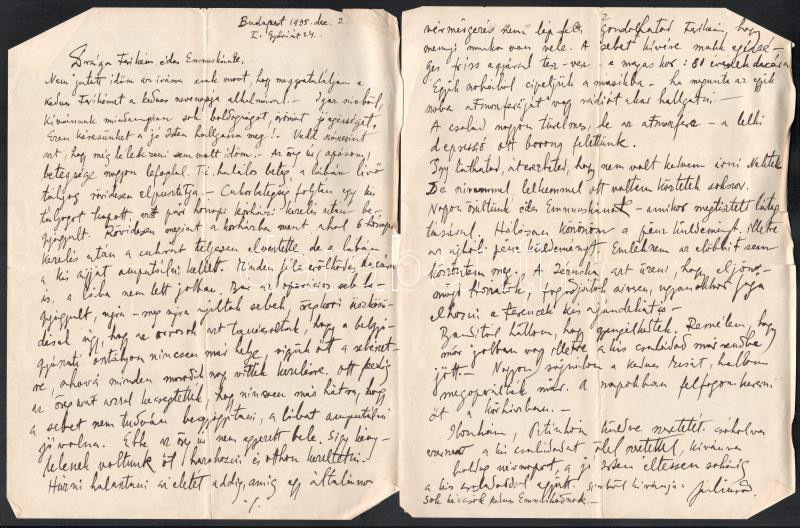 Budapest 1935. dec. 2
I. Győri út 24.
Drága Farkém, édes Emmuskánk,
Nem jutott időm az írásra csak most, hogy meggratuláljam a
kedves Farkémet a kedves nevenapja alkalmával. – Igaz szívből,
kívánunk mindnyájan sok boldogságot, örömet jó egészséget.
Ezen kérésünket a jó Isten hallgassa meg! – Vedd szószerint
azt, hogy még lélekzeni sem volt időm. – Az öreg úr apósom,
betegsége nagyon lefoglal. Ti. halálos beteg, a lábán lévő
tályog rövidesen elpusztítja. – Cukorbetegség folytán egy kis
tályogot kapott, pár hónapi kórházi kezelés után be-
gyógyult. Rövidesen megint a kórházba ment, ahol 6 hónapi
kezelés után a cukrát teljesen elvesztette, de a lábán
a kis ujját amputálni kellett. Minden félerőlködés dacára
is, a lába nem lett jobban. Bár az operációs seb be-
gyógyult, újra – meg újra nyíltak sebek,
úgy, hogy az orvosok azt tanácsolták, hogy a belgyó-
gyászati osztályon nincsen már helye, vigyük át a sebészet-
re, ahová minden másod nap vitték kezelésre. Ott pedig
az öregurat azzal kecsegtették, hogy nincsen más hátra, hogy
a sebet nem tudván begyógyítani, a lábát amputálni
jó volna. Ebbe az öreg úr nem egyezett bele. Így kény-
telenek voltunk őt hazahozni és otthon kezeltetni. –
Húzni halasztani az életet addig, amíg egy általános
./.
2
vérmérgezés nem lép fel. Gondolhatod Farkém, hogy
mennyi munka van vele. A sebet kivéve makk egészsé-
ges friss aggyal – a magas kor: 80 évesek dacára
Egyik szobából cipeljük a másikba. – ha megunta az egyik
szoba atmosferáját vagy rádiót akar hallgatni. –
A család nagyon türelmes, de az atmosfera – a lelki
depresszió ott borong felettünk.
Így láthatod, átérezheted, hogy nem volt kedvem írni Nektek
De szívemmel lelkemmel ott voltam köztetek sokszor.
Nagyon örültünk édes Emmuskának – amikor megtisztelt láto-
gatásával. Hálásan köszönöm a pénz küldeményt, illetve
az újbóli pénz küldeményt. Emlékszem az előbbit sem
köszöntem meg. A Zsuzska azt üzeni, hogy eljön
fogadjátok szívesen, ugyanakkor fogja
elhozni a Ferencek kis ajándékát is. –
Banditól hallom, hogy gyengélkedtek. Remélem, hogy
már jobban vagy illetve a kis családod már rendbe
jött. – Nagyon sajnálom a kedves Rezsit, hallom
megoperálták már. A napokban felfogom keresni
őt a kórházban. –
Ilonkám Pitinkám küldve szeretetét. csókolva
a kis családodat ölel szeretettel, kívánva
boldog névnapot, a jó Isten éltessen sokáig
a kis családoddal együtt. szívből kívánja: Juliusod
Sok kézcsók kedves Emmuskádnak. –